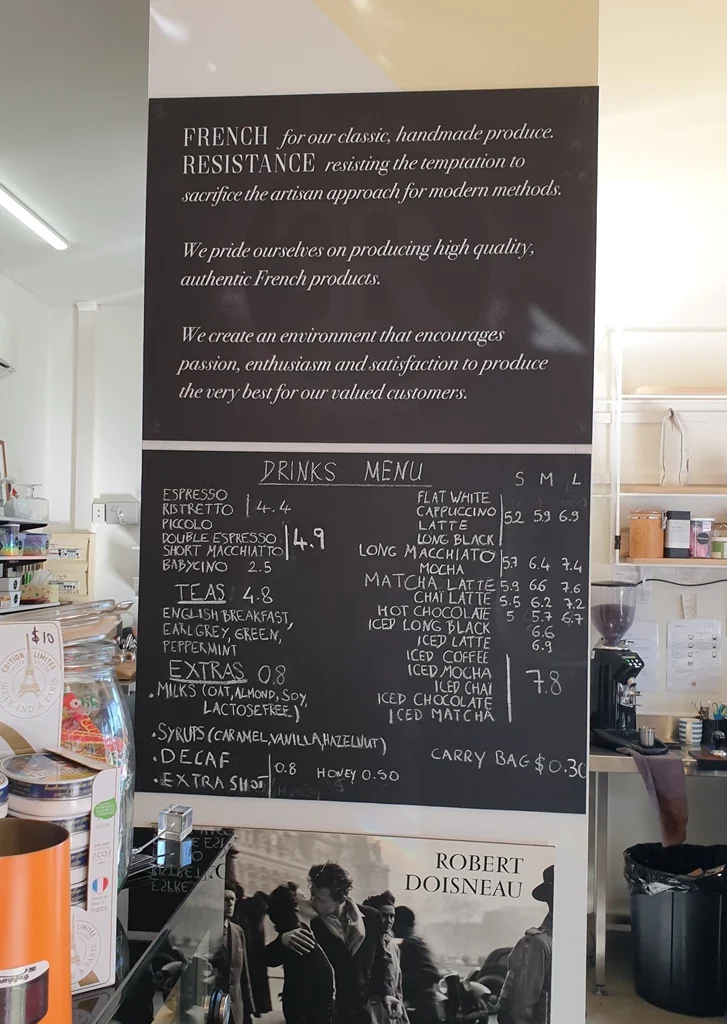 FRENCH for our classic, handmade produce.
RESISTANCE resisting the temptation to
sacrifice the artisan approach for modern methods.
We pride ourselves on producing high quality,
authentic French products.
We create an environment that encourages
passion, enthusiasm and satisfaction to produce
the very best for our valued customers.
DRINKS MENU
ESPRESSO
RISTRETTO 4.4
PICCOLO
DOUBLE ESPRESSO 4.9
SHORT MACCHIATTO
BABYCINO 2.5
TEAS 4.8
ENGLISH BREAKFAST,
EARL GREY, GREEN,
PEPPERMINT
EXTRAS 0.8
.MILKS (OAT, ALMOND, SOY,
LACTOSE FREE)
.SYRUPS (CARAMEL, VANILLA, HAZELNUT)
.DECAF
.EXTRA SHOT 0.8 HONEY 0.50
S M L
FLAT WHITE
CAPPUCCINO 5.2 5.9 6.9
LATTE
LONG BLACK
LONG MACCHIATO
MOCHA 5.7 6.4 7.4
MATCHA LATTE 5.9 6.6 7.6
CHAI LATTE 5.5 6.2 7.2
HOT CHOCOLATE 5 5.7 6.7
ICED LONG BLACK 6.6
ICED LATTE 6.9
ICED COFFEE
ICED MOCHA
ICED CHAI 7.8
ICED CHOCOLATE
ICED MATCHA
CARRY BAG $0.30
ROBERT
DOISNEAU
$10